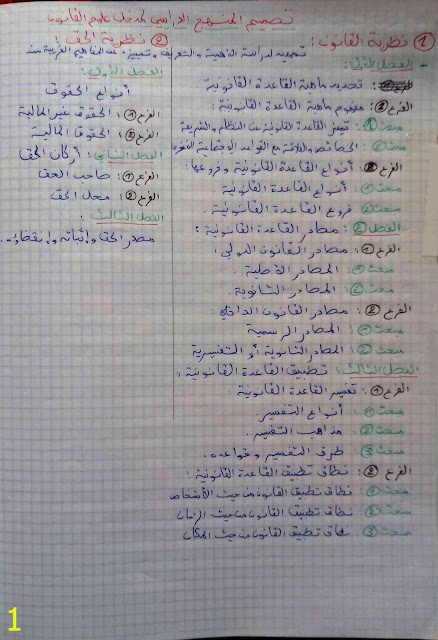 تصميم المنهج الدراسي لمدخل علوم القانون
① نظرية القانون:
- الفصل الأول:
تحديد ماهية القاعدة القانونية
الفرع ①: مفهوم ماهية القاعدة القانونية:
مبحث ①: تمييز القاعدة القانونية عن النظام والشريعة
مبحث ②: الخصائص والعلاقة مع القواعد الاجتماعية
الفرع ②: أنواع القاعدة القانونية وفروعها:
مبحث ①: أنواع القاعدة القانونية
مبحث ②: فروع القاعدة القانونية.
الفصل ②: مصادر القاعدة القانونية:
الفرع ①: مصادر القانون الدولي:
مبحث ①: المصادر الأصلية.
مبحث ②: المصادر الثانوية.
الفرع ②: مصادر القانون الداخلي:
مبحث ①: المصادر الرسمية
مبحث ②: المصادر الثانوية أو التفسيرية
الفصل الثالث: تطبيق القاعدة القانونية:
الفرع ①: تفسير القاعدة القانونية.
مبحث ①: أنواع التفسير
مبحث ②: مذاهب التفسير.
مبحث ③: طرق التفسير وقواعده.
الفرع ②: نطاق تطبيق القاعدة القانونية:
مبحث ①: نطاق تطبيق القانون من حيث الأشخاص
مبحث ②: نطاق تطبيق القانون من حيث الزمان
مبحث ③: نطاق تطبيق القانون من حيث المكان
② نظرية الحق:
تمهيد لدراسة الماهية والتعريف وتمييزه عن المفاهيم القريبة منه
الفصل الأول:
أنواع الحقوق
الفرع ①: الحقوق غير المالية
الفرع ②: الحقوق المالية
الفصل الثاني: أركان الحق
الفرع ①: صاحب الحق
الفرع ②: محل الحق
الفصل الثالث:
مصدر الحق وإثباته وإنقضاؤه.
1